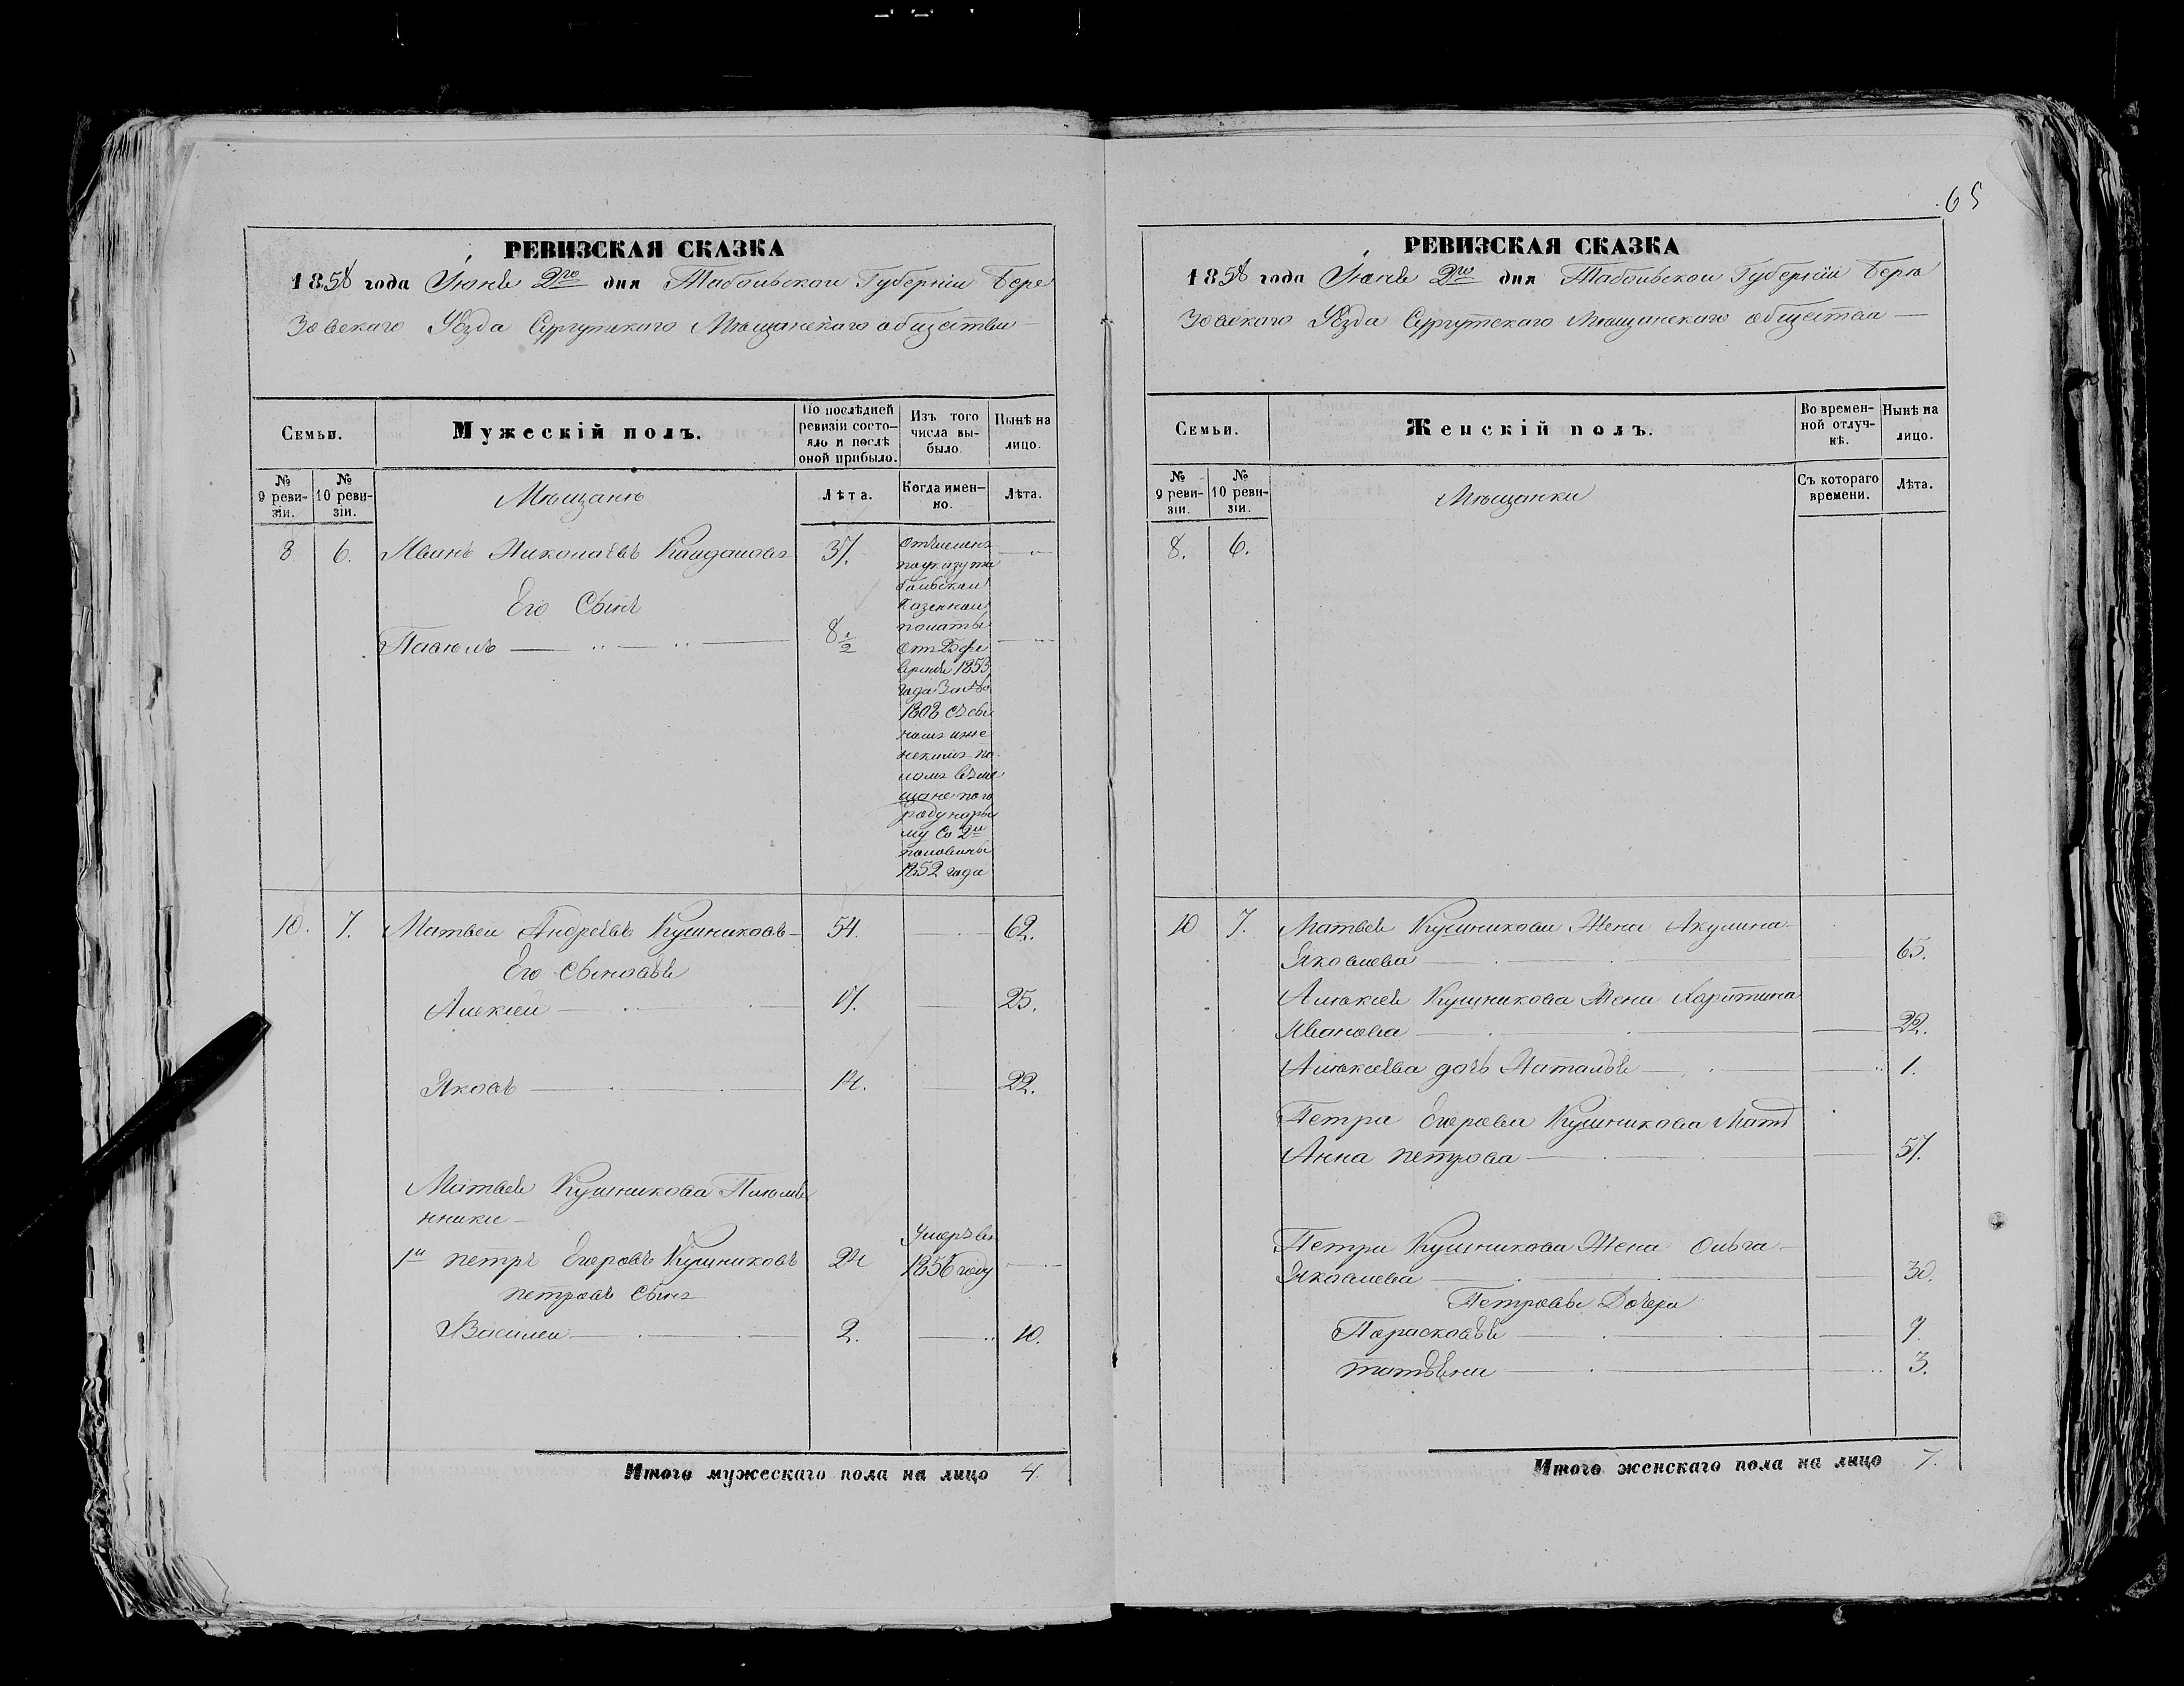 65
РЕВИЗСКАЯ СКАЗКА
1858 года Июня 2го дня Тобольской Губерніи Бере
зовскаго Уѣзда Сургутскаго Мѣщанскаго общества
Семьи.
Мужескій полъ.
По послѣдней ревизіи состо-
яло и послѣ оной прибыло.
Изъ того числа вы-
было.
Нынѣ на лицо.
№ 9 реви-
зіи.
№ 10 реви-
зіи.
Мѣщане
Лѣта.
Когда имен-
но.
Лѣта.
8 6. Иванъ Николаевъ Кайдаловъ 37.
Его Сынъ
Павелъ 8 1/2
отчисленъ
по указу то
больской
Казенной
палаты
от 25 фе
враля 1853
года за №
1808 съ сы
номъ и же
нскимъ по
ломъ въ мѣ
щане по го
роду нары
му со 2й
половины
1852 года
10. 7. Матвей Андреевъ Кушниковъ 54. 62.
Его Сыновья
Алексей 17. 25.
Яковъ 14. 22.
Матвея Кушникова Племя
нники
1й Петръ Егоровъ Кушниковъ 24 Умеръ въ
1856 году
Петровъ Сынъ
Василей 2. 10.
Итого мужескаго пола на лицо 4.
РЕВИЗСКАЯ СКАЗКА
1858 года Июня 2го дня Тобольской Губерніи Бере
зовскаго Уѣзда Сургутскаго Мѣщанскаго общества
Семьи.
Женскій полъ.
Во времен-
ной отлуч-
кѣ.
Нынѣ на лицо.
№ 9 реви-
зіи.
№ 10 реви-
зіи.
Мѣщанки
Съ котораго времени.
Лѣта.
8. 6.
10 7. Матвея Кушникова Жена Акулина
Яковлева 65.
Алексея Кушникова Жена Харитина
Иванова 22.
Алексеева дочь Наталья 1.
Петра Егорова Кушникова Мать
Анна Петрова 57.
Петра Кушникова Жена Ольга
Яковлева 30.
Петровы Дочери
Парасковья 9.
Татьяна 3.
Итого женскаго пола на лицо 7.